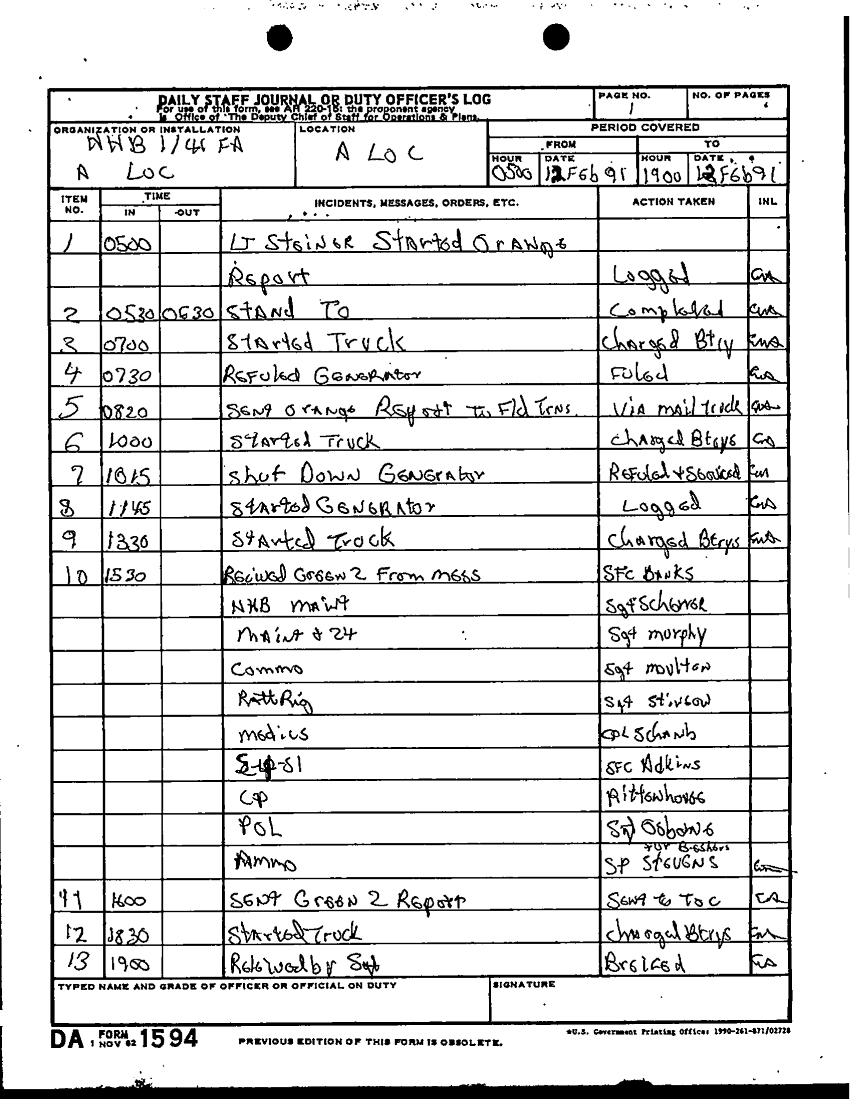 DAILY STAFF JOURNAL OR DUTY OFFICER'S LOG PAGE NO. NO. OF PAGES
For use of this form, see AR 220-15; the proponent agency 1
is Office of The Deputy Chief of Staff for Operations & Plans.
ORGANIZATION OR INSTALLATION LOCATION PERIOD COVERED
HHB 1/41 FA A LOC FROM TO
A LOC HOUR DATE HOUR DATE
0500 12 Feb 91 1900 12 Feb 91
ITEM NO. TIME INCIDENTS, MESSAGES, ORDERS, ETC. ACTION TAKEN INL
IN OUT
1 0500 LT Steiner Started Orange
Report Logged
2 0530 0630 Stand To Completed
3 0700 Started Truck Charged Btry
4 0730 Refuled Generator Fuled
5 0820 Sent Orange Report to Fld Trns Via mail truck
6 1000 Started Truck Charged Btrys
7 1015 Shut Down Generator Refuled + Serviced
8 1145 Started Generator Logged
9 1330 Started Truck Charged Btrys
10 1530 Recived Green 2 From mess SFC Banks
HHB maint Sgt
maint & 24 Sgt murphy
Commo Sgt moulton
Ratt Rig Sgt Stinson
medics CPL Schanb
S1 SFC Adkins
CP Rittenhouse
POL Sgt Osborne
Ammo SP Stevens
11 1600 Sent Green 2 Report Sent to TOC EA
12 1830 Started Truck Charged Btrys
13 1900 Releived by Sgt EA
TYPED NAME AND GRADE OF OFFICER OR OFFICIAL ON DUTY SIGNATURE
DA FORM 1 NOV 62 1594 PREVIOUS EDITION OF THIS FORM IS OBSOLETE. *U.S. Government Printing Office: 1990-261-871/02728